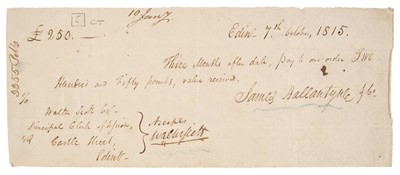 £ 250.
C
CT
10 Jany
Edinr 7th October, 1815.
Three Months after date, pay to our order Two
Hundred and Fifty pounds, value received.
James Ballantyne & Co.
Walter Scott Esqr
Principal Clerk of Session,
Castle Street,
Edinr
Accepts
Walter Scott